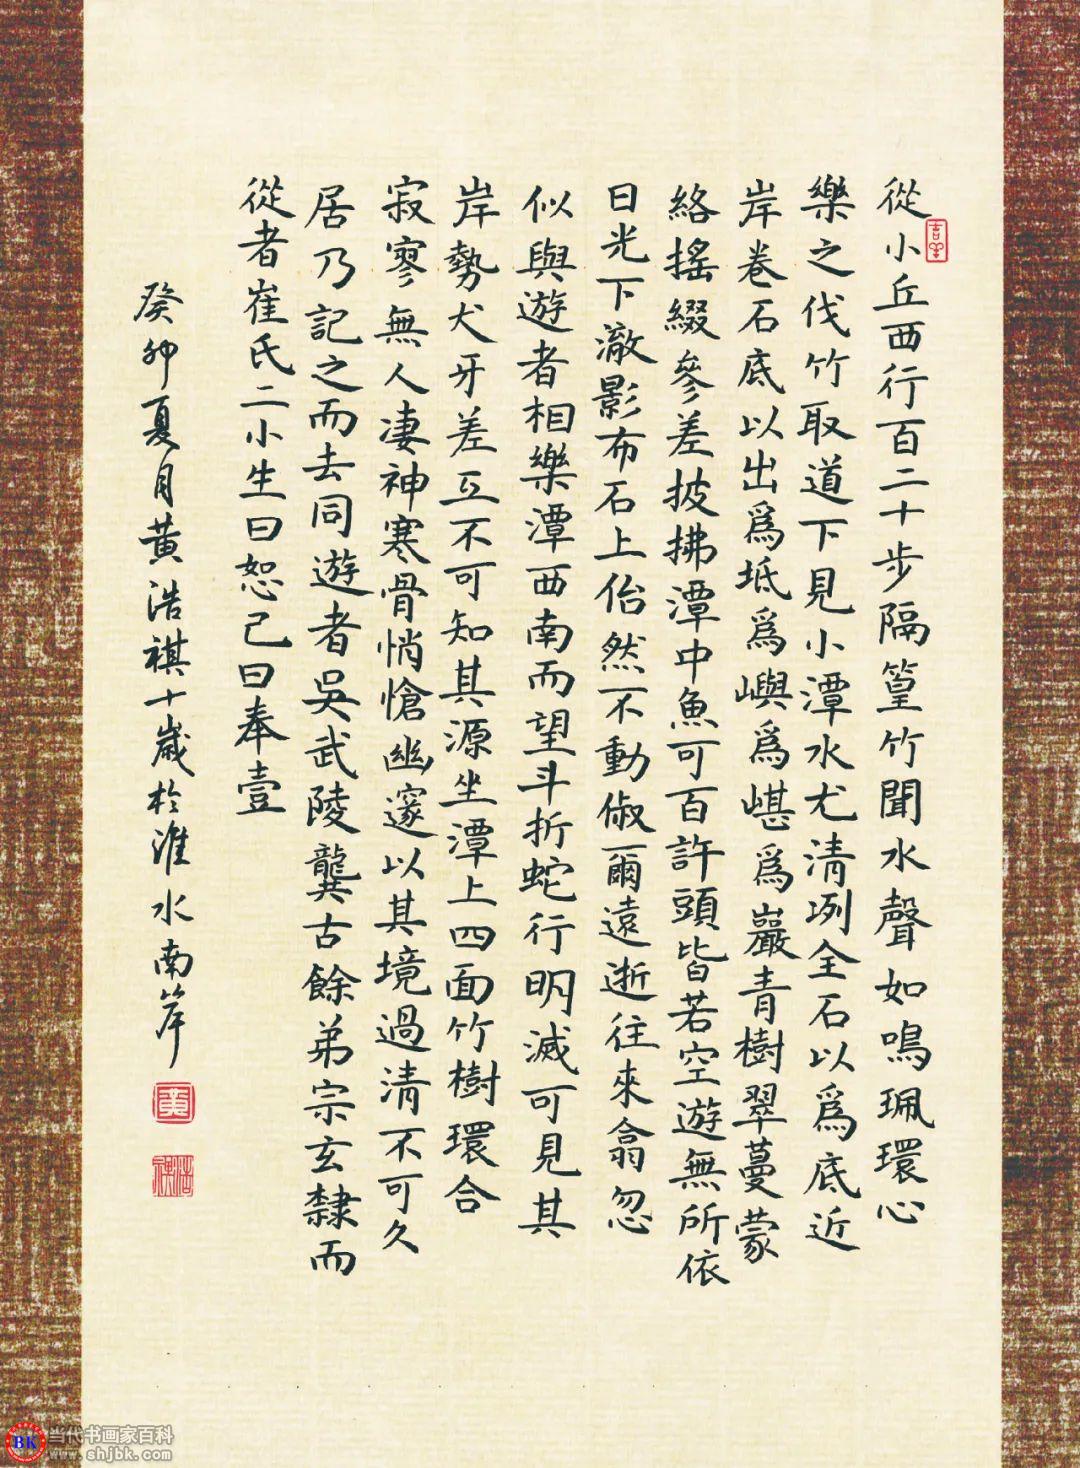 從小丘西行百二十步隔篁竹聞水聲如鳴珮環心
樂之伐竹取道下見小潭水尤清冽全石以爲底近
岸卷石底以出爲坻爲嶼爲嵁爲巖青樹翠蔓蒙
絡搖綴參差披拂潭中魚可百許頭皆若空遊無所依
日光下澈影布石上佁然不動俶爾遠逝往來翕忽
似與遊者相樂潭西南而望斗折蛇行明滅可見其
岸勢犬牙差互不可知其源坐潭上四面竹樹環合
寂寥無人凄神寒骨悄愴幽邃以其境過清不可久
居乃記之而去同遊者吳武陵龔古餘弟宗玄隸而
從者崔氏二小生曰恕己曰奉壹
癸卯夏月黄浩祺十歲於淮水南岸
黄
浩祺
BK
当代书画家百科
www.shjbk.com